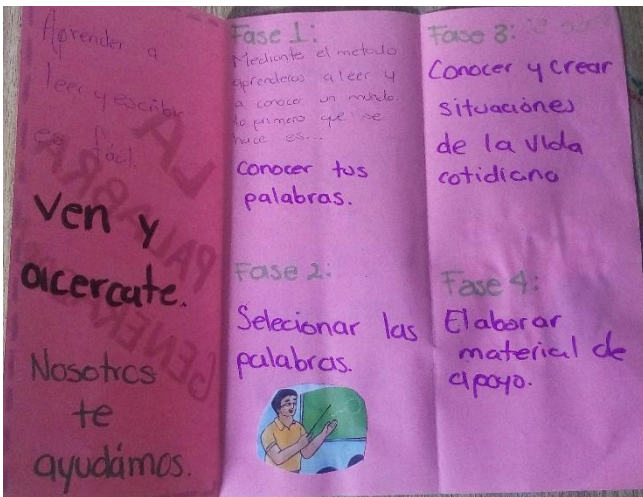 Aprender a
leer y escribir
es fácil.
Ven y
acercate.
Nosotros
te
ayudámos.
Fase 1:
Mediante el método
aprenderas a leer y
a conocer un mundo.
lo primero que se
hace es...
Conocer tus
palabras.
Fase 2:
Selecionar las
palabras.
Fase 3:
Conocer y crear
situaciónes
de la vida
cotidiana
Fase 4:
Elaborar
material de
apoyo.
LA
PALABRA